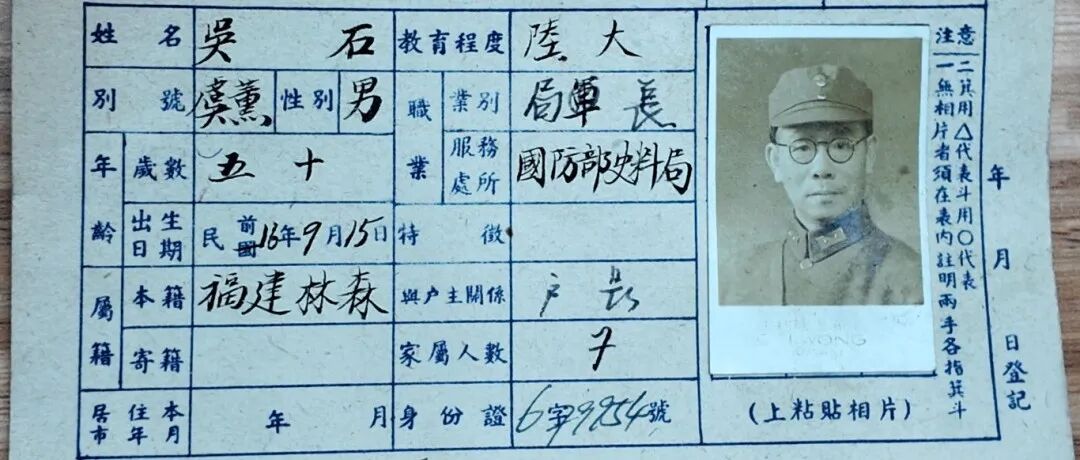 姓名 吳石 教育程度 陸大
別號 虞薰 性別 男 職業 業別 軍
年齡 歲數 五十 服務處所 國防部史料局局長
出生日期 民前國16年9月15日 特徵
屬籍 本籍 福建林森 與户主關係 户長
寄籍 家屬人數 7
居住本市年月 年 月 身份證 6字9954號
(上粘貼相片)
注意
一無相片者須在表内註明兩手各指箕斗
二箕用△代表斗用〇代表
年 月 日登記